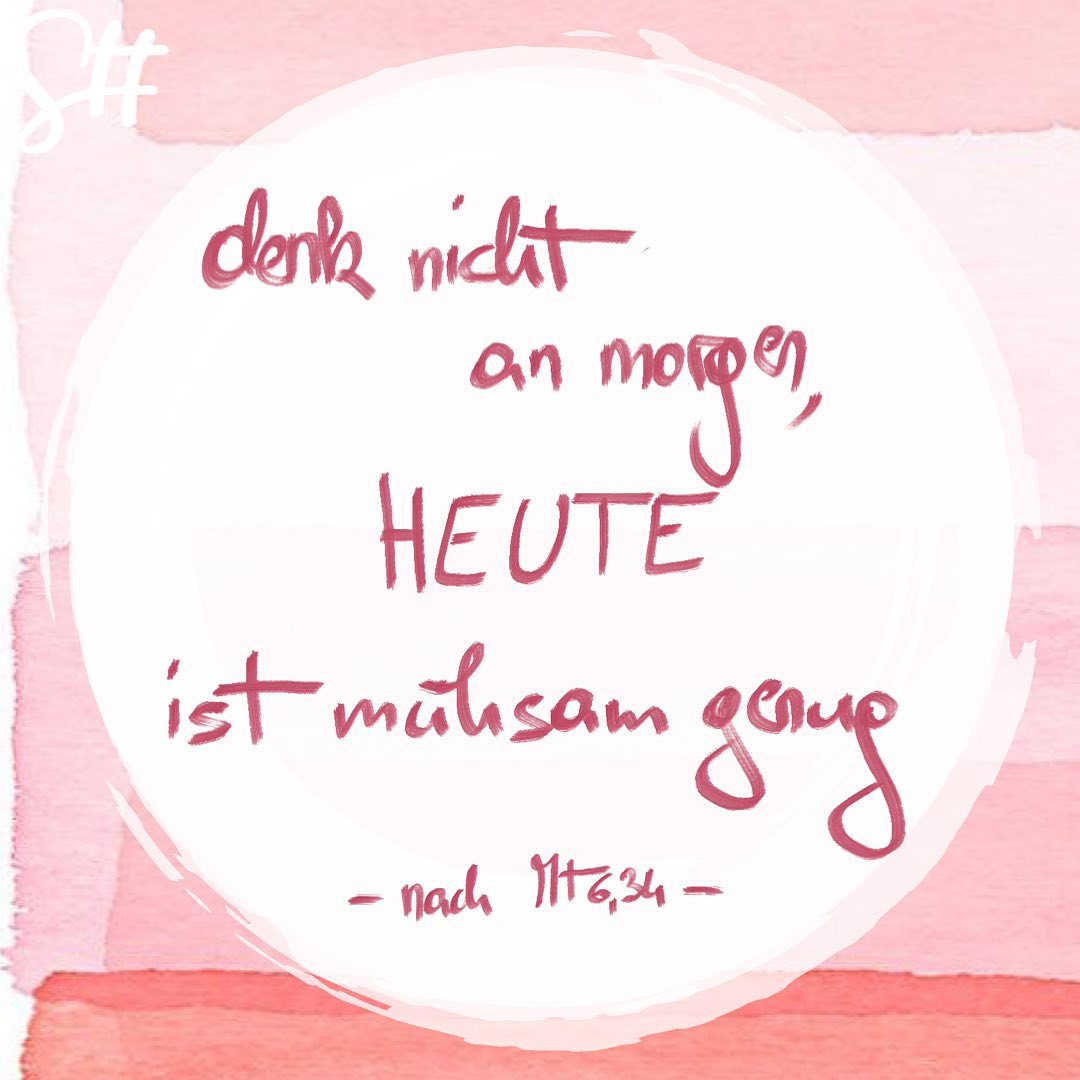 denk nicht
an morgen,
HEUTE
ist mühsam genug
- nach Mt 6,34 -